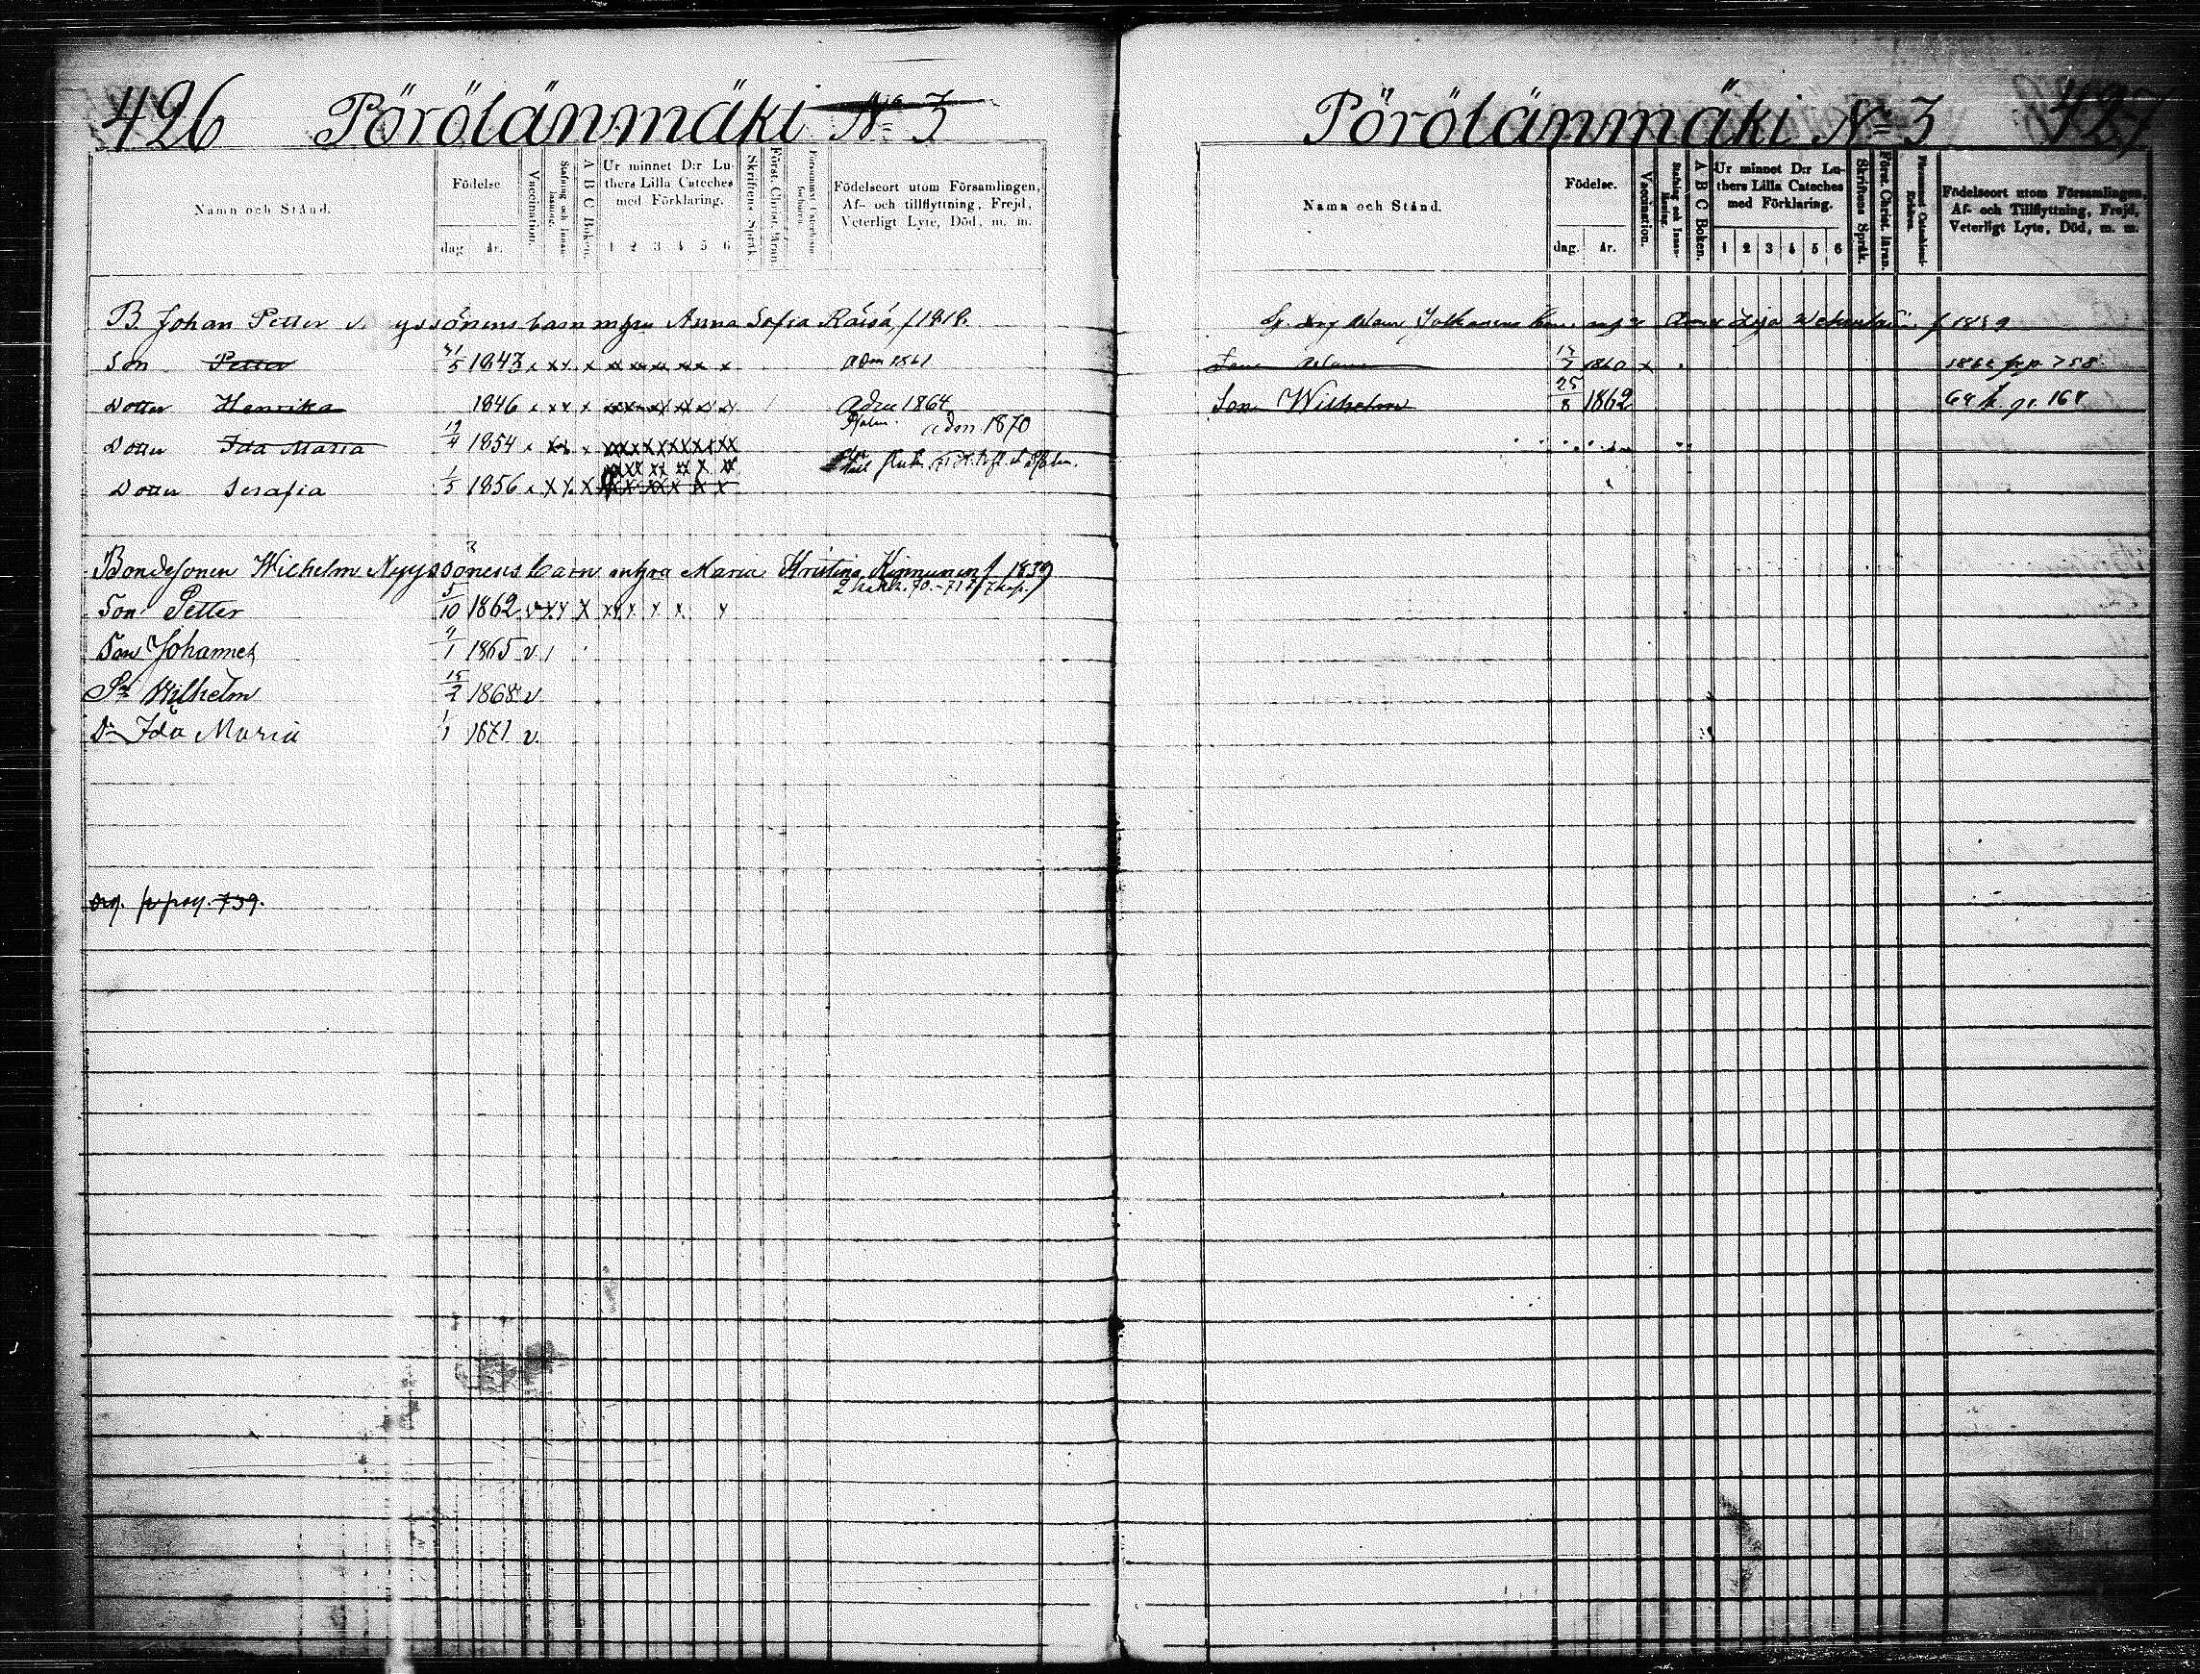 426 Pörölänmäki No 3
Namn och Stånd.
Födelse
dag. år.
Vaccination.
Stafning och Innan läsning.
A B C Boken.
Ur minnet D:r Luthers Lilla Cateches med Förklaring.
1 2 3 4 5 6
Skriftens Språk.
Först. Christ. läran.
Födelseort utom Församlingen, Af- och tillflyttning, Frejd, Veterligt Lyte, Död, m. m.
B. Johan Petter yssönens barn m Anna Sofia Räisä, f 1818.
Son Petter 31/5 1843 adm 1861
Dotter Henrika 1846 adm 1864
Dotter Ida Maria 19/4 1854 adm 1870
Dotter Serafia 1/5 1856
Bondesonen Wichelm Nyyssönens barn Maria Kristina Kinnunen f 1839
Son Petter 5/10 1862
Son Johannes 9/1 1865 v
Sn Wilhelm 15/2 1868 v
Dr Ida Maria 1/1 1871 v.
pag. 739.
Pörölänmäki No 3 427
Namn och Stånd.
Födelse.
dag. år.
Vaccination.
Stafning och Innan-läsning.
A B C Boken.
Ur minnet D:r Luthers Lilla Cateches med Förklaring.
1 2 3 4 5 6
Skriftens Språk.
Först. Christ. läran.
Födelseort utom Församlingen, Af- och Tillflyttning, Frejd, Veterligt Lyte, Död, m. m.
Adam Anna Lisa f 1839
Adam 1860 758
Son Wilhelm 25/8 1862